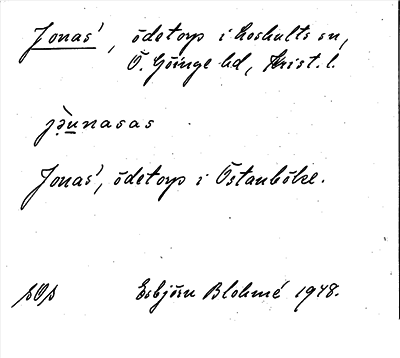 Jonas', ödetorp i Loshults sn,
Ö. Göinge hd, Krist. l.
jɔ̀unasas
Jonas', ödetorp i Östanböke.
sOs Esbjörn Blohmé 1948.